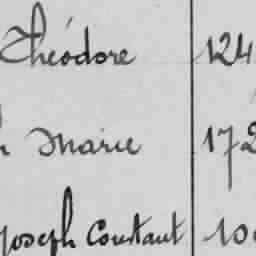 Théodore 124
Marie 172
Joseph Constant 10